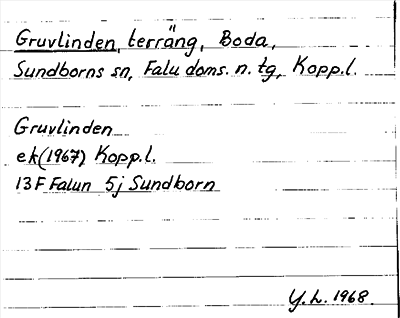 Gruvlinden, terräng, Boda,
Sundborns sn, Falu doms. n. tg, Kopp.l.
Gruvlinden
ek(1967) Kopp.l.
13 F Falun 5j Sundborn
Y.L. 1968.